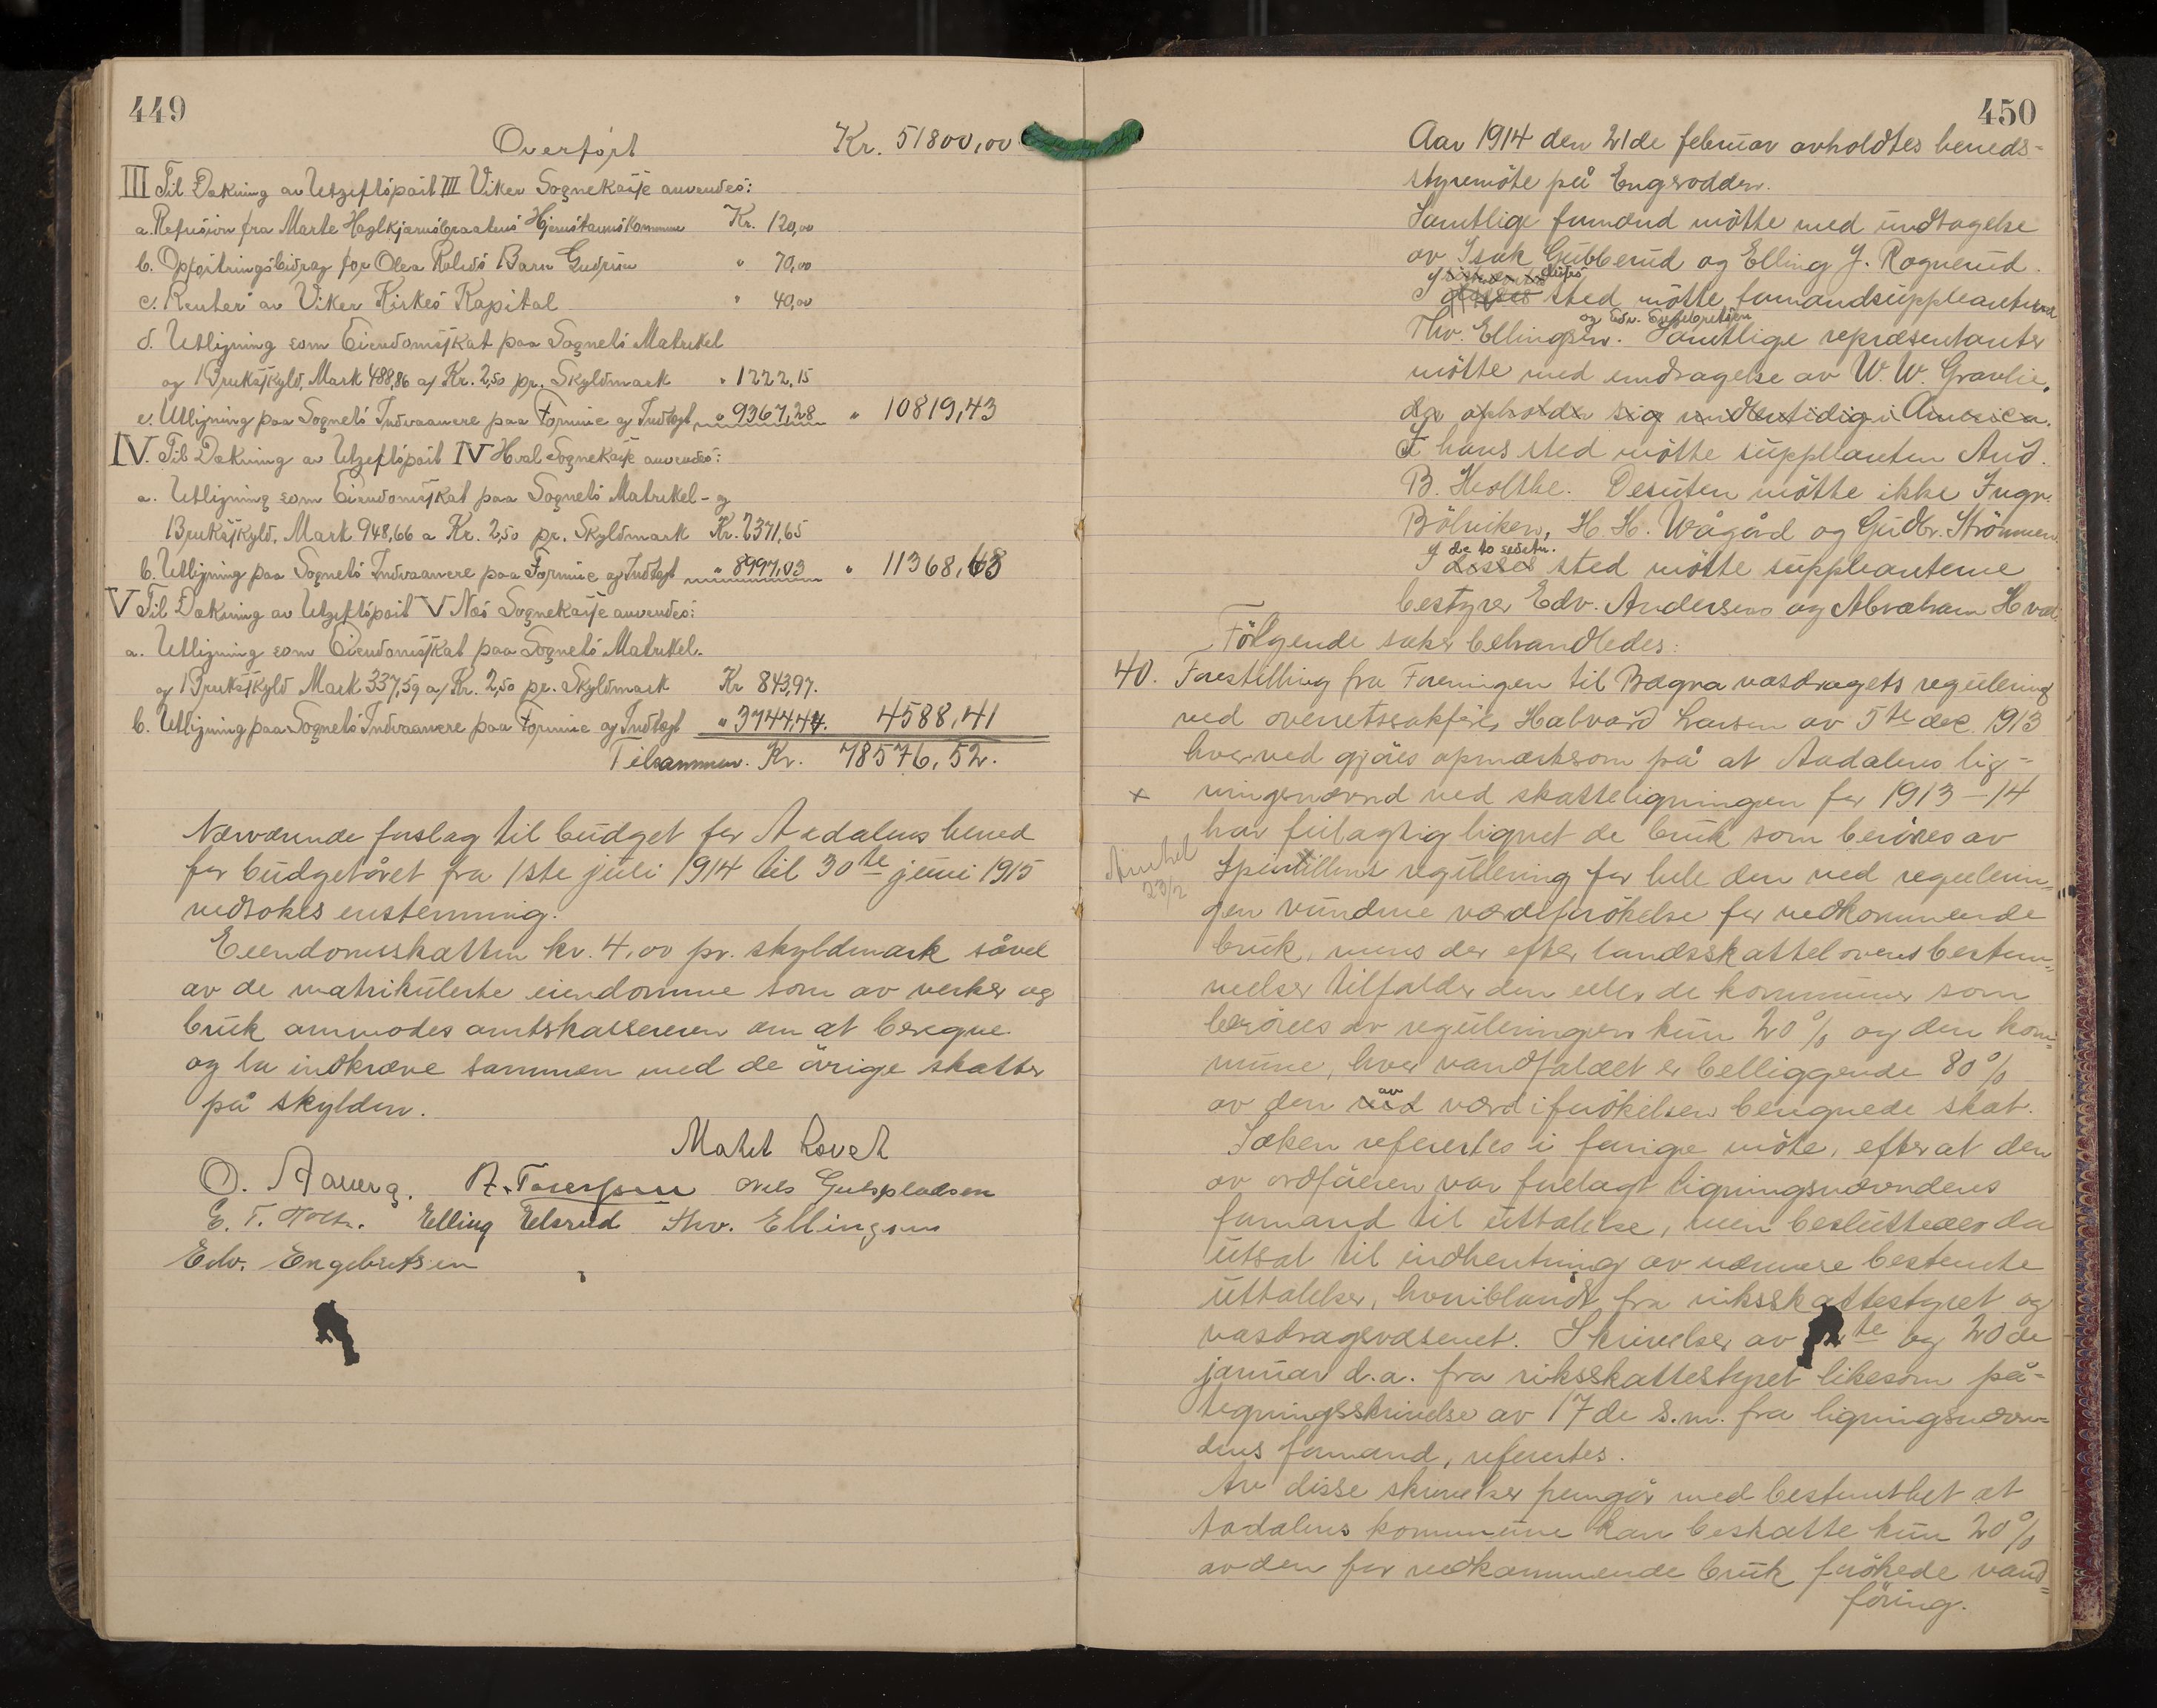 449
Overført Kr. 51800,00
III Til Dækning av Utgiftspost III Viker Sognekasse anvendes:
a. Refusion fra Marte Haglkjærnsbraatens Hjemstavnskommune Kr. 120,00
b. Opfostringsbidrag for Olea Roluds Barn Gudrun " 70,00
c. Renter av Viker Kirkes Kapital " 40,00
d. Utligning som Eiendomsskat paa Sognets Matrikel
og Bruksskyld, Mark 488,86 a/ Kr. 2,50 pr. Skyldmark " 1222,15
e. Utligning paa Sognets Indvaanere paa Formue og Indtægt " 9367,28 " 10819,43
IV. Til Dækning av Utgiftspost IV Hval Sognekasse anvendes:
a. Utligning som Eiendomsskat paa Sognets Matrikel- og
Bruksskyld, Mark 948,66 a Kr. 2,50 pr. Skyldmark Kr. 2371,65
b. Utligning paa Sognets Indvaanere paa Formue og Indtægt " 8997,03 " 11368,68
V Til Dækning av Utgiftspost V Næs Sognekasse anvendes:
a. Utligning som Eiendomsskat paa Sognets Matrikel.
og Bruksskyld Mark 337,59 a/ Kr. 2,50 pr. Skyldmark Kr 843,97.
b. Utligning paa Sognets Indvaanere paa Formue og Indtægt " 3744,44. 4588,41
Tilsammen. Kr. 78576,52.
Nærværende forslag til budget for Aadalens hered
for budgetåret fra 1ste juli 1914 til 30te juni 1915
vedtokes enstemmig.
Eiendomsskatten kr. 4,00 pr. skyldmark såvel
av de matrikulerte eiendomme som av verker og
bruk anmodes amtskassereren om at beregne
og la indkræve sammen med de övrige skatter
på skylden.
O. Aaverg. A. Thoresen Nils Gulsplassen
E. T. Holte. Elling Elsrud Thv. Ellingsen
Edv. Engebretsen
450
Aar 1914 den 21de februar avholdtes hereds-
styremöte på Engerodden.
Samtlige formænd mötte med undtagelse
av Isak Gubberud og Elling J. Rognerud.
I disses sted mötte formandsuppleanterne
Thv. Ellingsen og Edv. Engebretsen. Samtlige repræsentanter
mötte med undtagelse av W. W. Gravlie,
der opholder sig underhtidig i America.
I hans sted mötte suppleanten And.
B. Holthe. Desuten mötte ikke Ingv.
Bölviken, H. H. Vågård og Gudbr. Strömmen
I de to sidstn. disses sted mötte suppleanterne
bestyrer Edv. Andersen og Abraham Hval
Fölgende saker behandledes:
40. Forestilling fra Foreningen til Bægna vasdragets regulering
ved overretssakfører Halvard Larsen av 5te dec. 1913
hvorved gjöres opmerksom på at Aadalens lig-
x ningsnævnd ved skatteligningen for 1913-14
har feilagtig lignet de bruk som beröres av
Spirillens regulering for hele den ved regulerin-
23/2
gen vundne værdiforökelse for vedkommende
bruk, mens der efter landsskattelovens bestem-
melser tilfalder den eller de kommuner som
beröres av reguleringen kun 20% og den kom-
mune, hvor vandfaldet er belliggende 80%
av den av værdiforökelsen beregnede skat.
Saken refertes i forrige möte, efterat den
av ordföreren var forelagt ligningsnævndens
formand til uttalelse, men besluttedes da
utsat til indhentning av nærmere bestemte
uttalelser, hvoriblandt fra riksskattestyret og
vasdragsvæsenet. Skrivelser av te og 20de
januar d.a. fra riksskattestyret likesom på-
tegningsskrivelse av 17de s.m. fra ligningsnævn-
dens formand, refertes.
Av disse skrivelser fremgår med bestemthet at
Aadalens kommune kan beskatte kun 20%
av den for vedkommende bruk forökede vand-
föring.